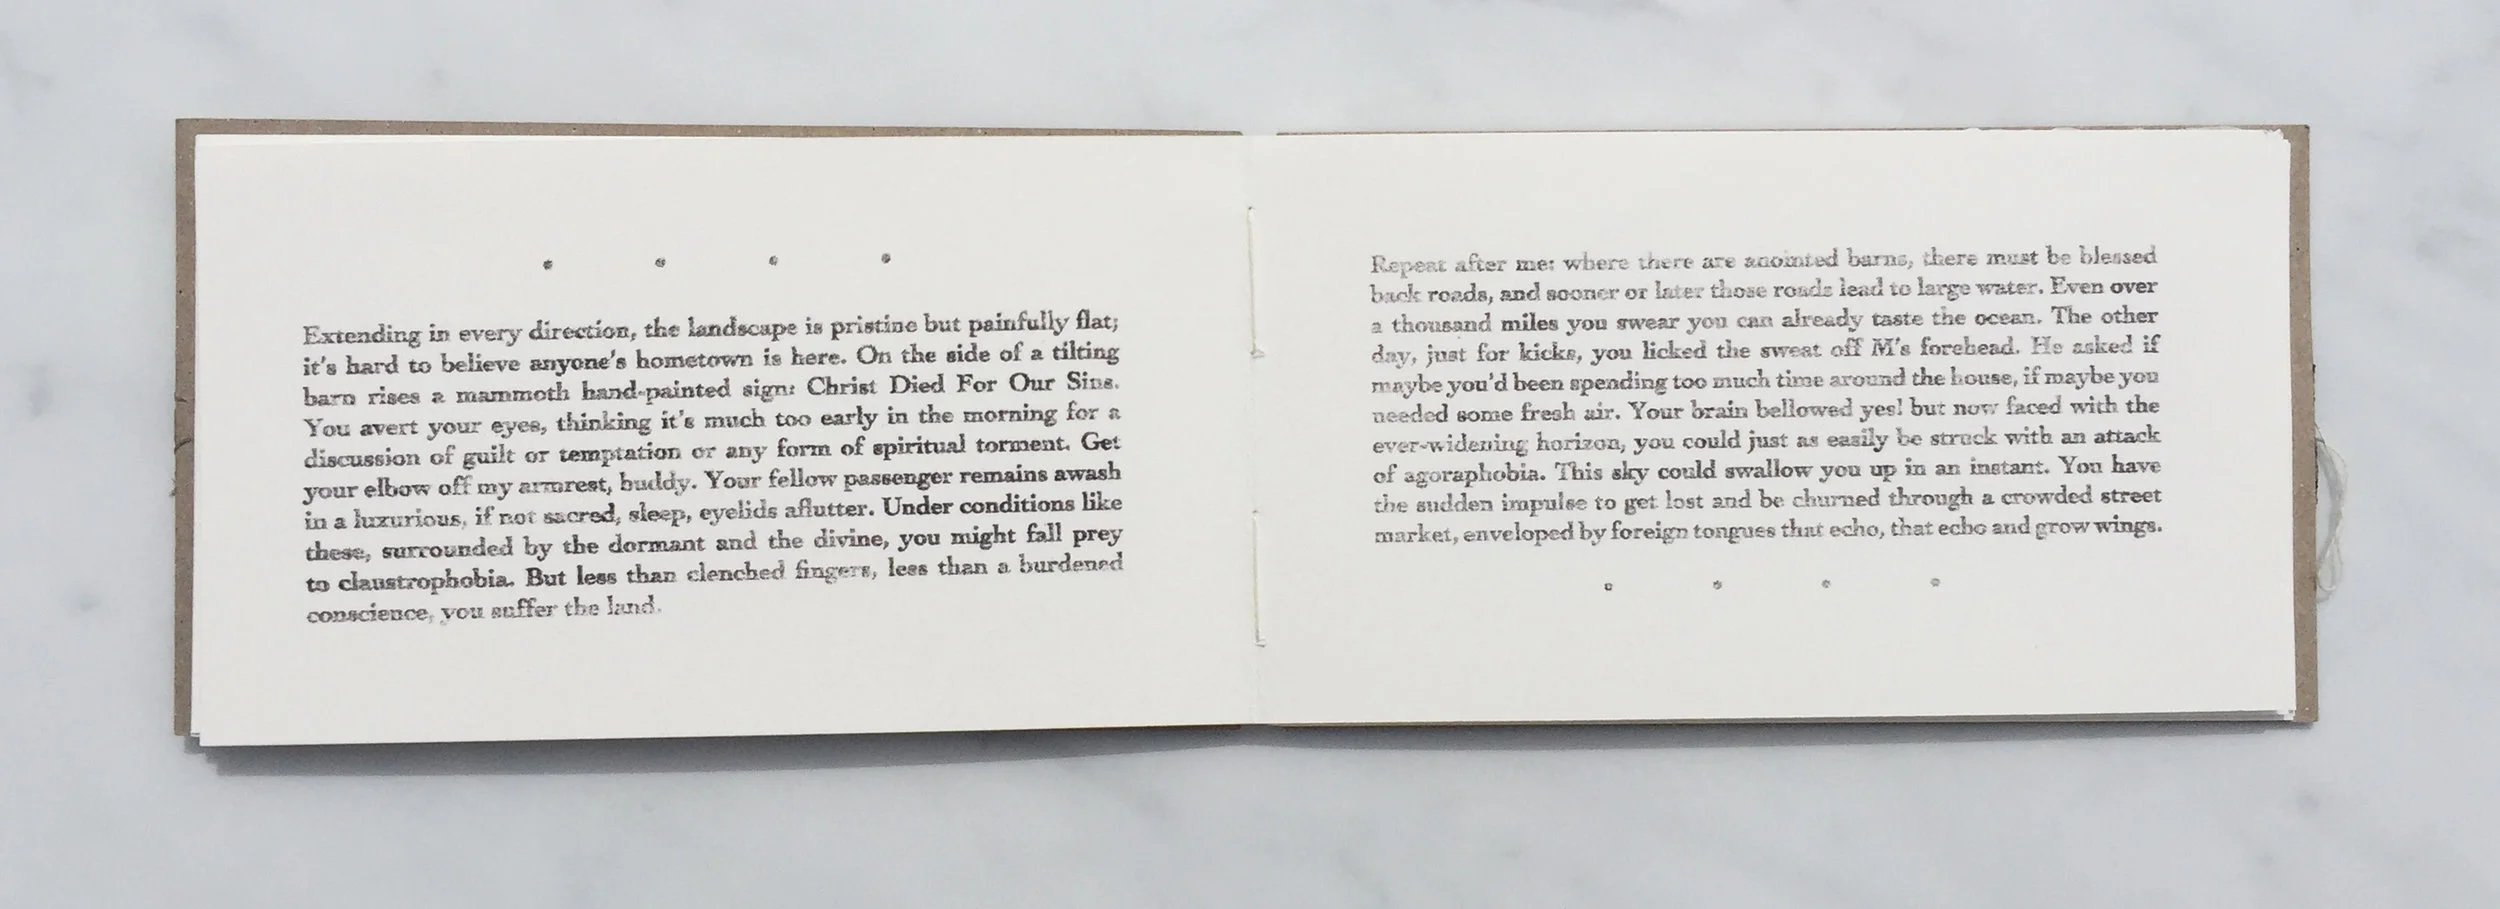 Extending in every direction, the landscape is pristine but painfully flat;
it's hard to believe anyone's hometown is here. On the side of a tilting
barn rises a mammoth hand-painted sign: Christ Died For Our Sins.
You avert your eyes, thinking it's much too early in the morning for a
discussion of guilt or temptation or any form of spiritual torment. Get
your elbow off my armrest, buddy. Your fellow passenger remains awash
in a luxurious, if not sacred, sleep, eyelids aflutter. Under conditions like
these, surrounded by the dormant and the divine, you might fall prey
to claustrophobia. But less than clenched fingers, less than a burdened
conscience, you suffer the land.
Repeat after me: where there are anointed barns, there must be blessed
back roads, and sooner or later those roads lead to large water. Even over
a thousand miles you swear you can already taste the ocean. The other
day, just for kicks, you licked the sweat off M's forehead. He asked if
maybe you'd been spending too much time around the house, if maybe you
needed some fresh air. Your brain bellowed yes! but now faced with the
ever-widening horizon, you could just as easily be struck with an attack
of agoraphobia. This sky could swallow you up in an instant. You have
the sudden impulse to get lost and be churned through a crowded street
market, enveloped by foreign tongues that echo, that echo and grow wings.